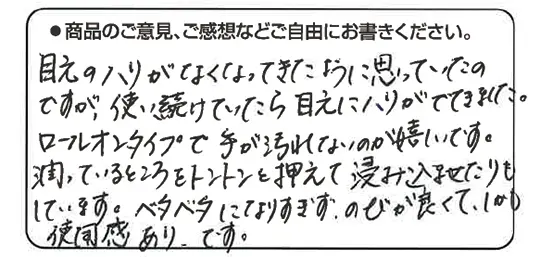 ●商品のご意見、ご感想などご自由にお書きください。
目元のハリがなくなってきたように思っていたの
ですが、使い続けていたら目元にハリがでてきました。
ロールオンタイプで手が汚れないのが嬉しいです。
潤っているところをトントンと押えて浸み込ませたりも
しています。ベタベタになりすぎず、のびが良くて、しかも
使用感あり、です。